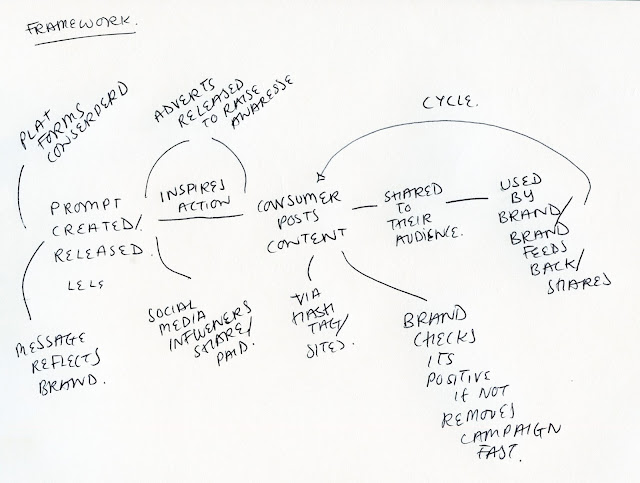 FRAMEWORK.
PLAT
FORMS
CONSERDERD
ADVERTS
RELEASED
TO RAISE
AWARESSE
CYCLE.
PROMPT
CREATED/
RELEASED.
INSPIRES
ACTION
CONSUMER
POSTS
CONTENT
SHARED
TO
THEIR
AUDIENCE.
USED
BY
BRAND/
BRAND
FEEDS
BACK/
SHARES
MESSAGE
REFLECTS
BRAND.
SOCIAL
MEDIA
INFLUENERS
SHARE/
PAID.
VIA
HASH
TAG/
SITES.
BRAND
CHECKS
ITS
POSITIVE
IF NOT
REMOVES
CAMPAIGN
FAST.